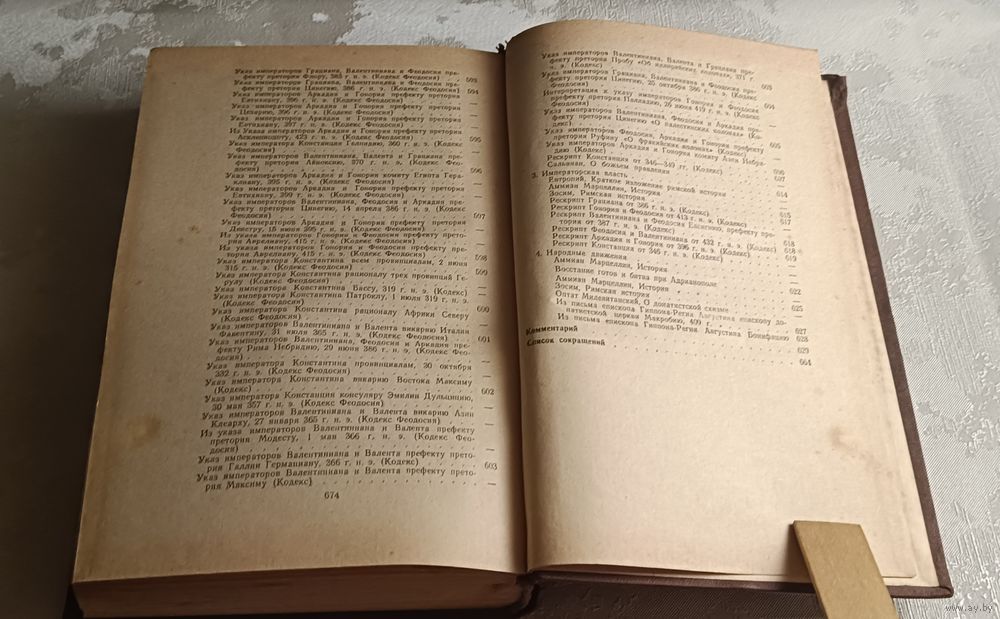 Указ императоров Грациана, Валентиниана и Феодосия пре-
фекту претория Флору, 383 г. н. э. (Кодекс Феодосия) . 593
Указ императоров Грациана, Валентиниана и Феодосия
претория Цинегию, 386 г. н. э. (Кодекс Феодосия) . 594
Указ императоров Аркадия и Гонория префекту претория
Евтихиану, 396 г. н. э. (Кодекс Феодосия) —
Указ императоров Аркадия и Гонория префекту претория
Цезарию, 396 г. н. э. (Кодекс Феодосия) —
Указ императоров Аркадия и Гонория префекту претория
Евтихиану, 397 г. н. э. (Кодекс Феодосия) —
Из Указа императоров Аркадия и Гонория префекту претория
Асклепиодоту, 423 г. н. э. (Кодекс Феодосия) 595
Указ императора Констанция Галпидию, 360 г. н. э. (Кодекс
Феодосия) —
Указ императоров Валентиниана, Валента и Грациана префекту
претория Авионсию, 370 г. н. э. (Кодекс
Феодосия) 596
Указ императоров Аркадия и Гонория комиту Египта Гера-
клиану, 395 г. н. э. (Кодекс Феодосия) —
Указ императоров Аркадия и Гонория префекту претория
Евтихиану, 399 г. н. э. (Кодекс Феодосия) —
Указ императоров Валентиниана, Феодосия и Аркадия пре-
фекту претория Цинегию, 14 апреля 386 г. н. э. (Кодекс
Феодосия) 597
Указ императоров Аркадия и Гонория префекту претория
Декстру, 15 июня 395 г. н. э. (Кодекс Феодосия) —
Из указа императоров Гонория и Феодосия префекту прето-
рия Аврелиану, 415 г. н. э. (Кодекс Феодосия) —
Из указа императоров Гонория и Феодосия префекту претория
Аврелиану, 415 г. н. э. (Кодекс Феодосия) 598
Указ императора Константина всем провинциалам, 2 июня
315 г. н. э. (Кодекс Феодосия) 599
Указ императора Константина рационалу трех провинций Ге-
рулу (Кодекс Феодосия) —
Указ императора Константина Бассу, 319 г. н. э. (Кодекс)
Указ императора Константина Патроклу, 1 июля 319 г. н. э.
(Кодекс Феодосия) —
Указ императора Константина рационалу Африки Северу
(Кодекс Феодосия) 600
Указ императоров Валентиниана и Валента викарию Италии
Фавентину, 31 июля 365 г. н. э. (Кодекс Феодосия) —
Указ императоров Валентиниана, Феодосия и Аркадия пре-
фекту Рима Небридию, 29 июня 386 г. н. э. (Кодекс Фео-
досия) 601
Указ императора Константина провинциалам, 30 октября
332 г. н. э. (Кодекс Феодосия) —
Указ императора Константина викарию Востока Максиму
(Кодекс) —
Указ императора Констанция консуляру Эмилии Дульцицию,
30 мая 357 г. н. э. (Кодекс Феодосия) 602
Указ императоров Валентиниана и Валента викарию Азии
Клеарху, 27 января 365 г. н. э. (Кодекс Феодосия) —
Из указа императоров Валентиниана и Валента префекту
претория Модесту, 1 мая 366 г. н. э. (Кодекс Фео-
досия) —
Указ императоров Валентиниана и Валента префекту прето-
рия Галлии Германиану, 366 г. н. э. (Кодекс) 603
Указ императоров Валентиниана и Валента префекту прето-
рия Максиму (Кодекс) —
674
Указ императоров Валентиниана, Валента и Грациана пре-
фекту претория Пробу «Об иллирийских колонах», 371 г.
н. э. (Кодекс) 603
Указ императоров Грациана, Валентиниана и Феодосия пре-
фекту претория Цинегию, 25 октября 386 г. н. э. (Кодекс
Феодосия) 604
Интерпретация к указу императоров Гонория и Феодосия
префекту претория Палладию, 26 июня 419 г. н. э. (Кодекс
Феодосия) —
Указ императоров Валентиниана, Феодосия, Аркадия пре-
фекту претория Цинегию «О палестинских колонах» (Ко-
декс) —
Указ императоров Феодосия, Аркадия и Гонория префекту
претория Руфину «О фракийских колонах» (Кодекс) 605
Указ императоров Аркадия и Гонория комиту Азии Небри-
дию (Кодекс) —
Рескрипт Констанция от 346—349 гг. (Кодекс) —
Сальвиан, О божьем правлении 606
3. Императорская власть 607
Евтропий, Краткое изложение римской истории —
Аммиан Марцеллин, История 614
Зосим, Римская история —
Рескрипт Грациана от 366 г. н. э. (Кодекс) 615
Рескрипт Гонория и Феодосия от 413 г. н. э. (Кодекс) 617
Рескрипт Валентиниана и Феодосия Евсигнию, префекту пре-
тория от 387 г. н. э. (Кодекс) —
Рескрипт Феодосия и Валентиниана от 432 г. н. э. (Кодекс) 618
Рескрипт Аркадия и Гонория от 396 г. н. э. (Кодекс) 618
Рескрипт Констанция от 345 г. н. э. (Кодекс) 619
4. Народные движения —
Аммиан Марцеллин, История —
Восстание готов и битва при Адрианополе
Аммиан Марцеллин, История 622
Зосим, Римская история —
Оптат Милевитанский, О донатистской схизме 625
Из письма епископа Гиппона-Регия Августина епископу до-
натистской церкви Макробию, 409 г. 627
Из письма епископа Гиппона-Регия Августина Бонифацию 628
Комментарий 629
Список сокращений 664
www.ay.by